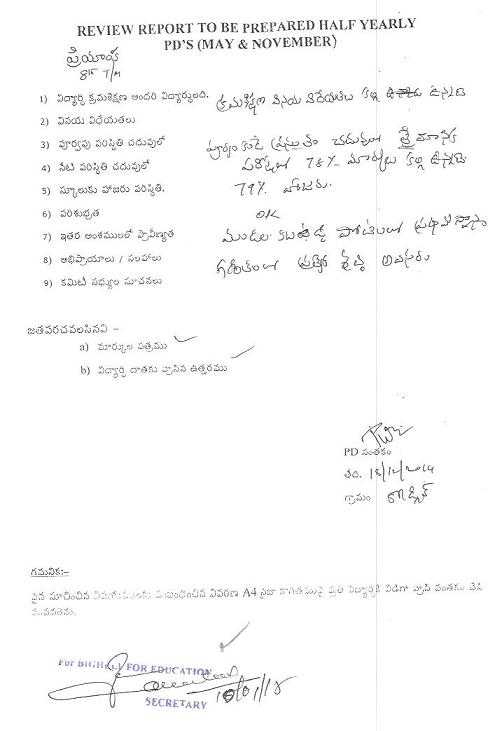 REVIEW REPORT TO BE PREPARED HALF YEARLY
PD'S (MAY & NOVEMBER)
ప్రియాంక
8th T/M
1) విద్యార్థి క్రమశిక్షణ అందరి విద్యార్థులది. క్రమశిక్షణ వినయ విధేయతలు కల్గి ఉన్నది
2) వినయ విధేయతలు
3) పూర్వపు పరిస్థితి చదువులో పూర్వం కంటే ప్రస్తుతం చదువులో
4) నేటి పరిస్థితి చదువులో 78% మార్కులు కల్గి ఉన్నది
5) స్కూలుకు హాజరు పరిస్థితి. 79% హాజరు.
6) పరిశుభ్రత OK
7) ఇతర అంశములలో ప్రావీణ్యత పోటీలలో
8) అభిప్రాయాలు / సలహాలు గణితంలో శ్రద్ధ అవసరం
9) కమిటీ సభ్యుల సూచనలు
జతపరచవలసినవి –
a) మార్కుల పత్రము
b) విద్యార్థి దాతకు వ్రాసిన ఉత్తరము
PD సంతకం
తేది. 18/12/2014
గ్రామం
గమనిక:–
పైన సూచించిన సంబంధించిన వివరణ A4 సైజు కాగితముపై ప్రతి విద్యార్థికి విడిగా వ్రాసి సంతకం చేసి
పంపవలెను.
For BIGHELP FOR EDUCATION
10/01/15
SECRETARY